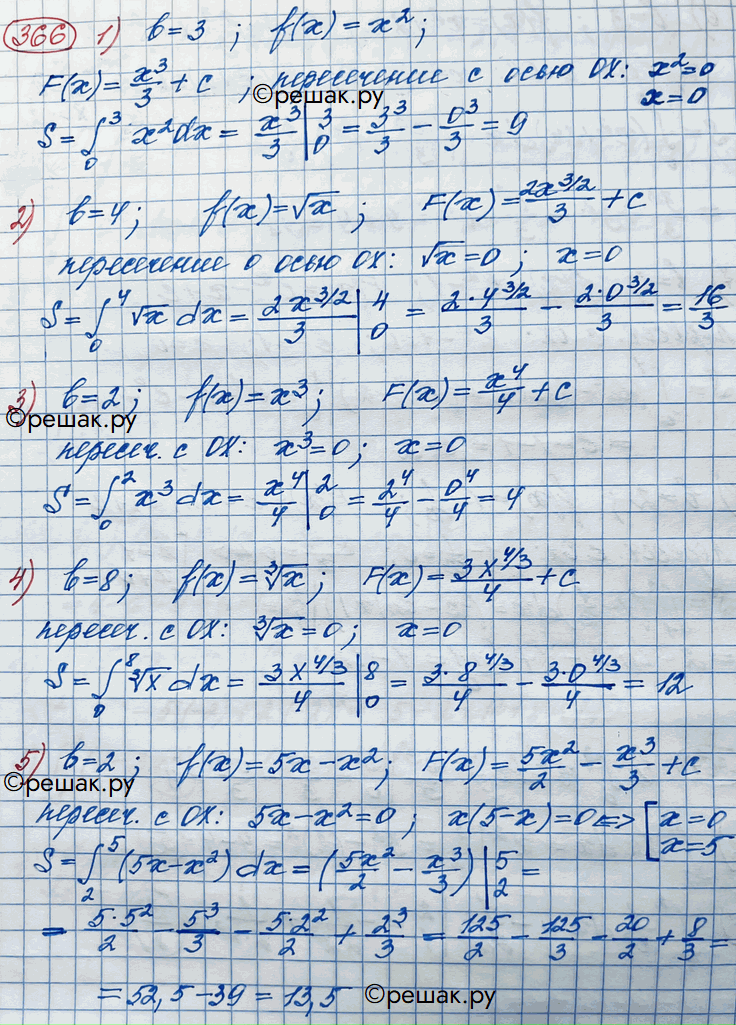 366 1) b=3 ; f(x)=x²;
F(x)=x³/3+C ; пересечение с осью OX: x²=0
©решак.ру x=0
S=∫₀³ x²dx= x³/3 |₀³ = 3³/3 - 0³/3 = 9
2) b=4; f(x)=√x ; F(x)=2x^(3/2)/3 +C
пересечение о осью OX: √x=0 ; x=0
S=∫₀⁴ √x dx= 2x^(3/2)/3 |₀⁴ = 2·4^(3/2)/3 - 2·0^(3/2)/3 = 16/3
3) b=2; f(x)=x³; F(x)=x⁴/4+C
©решак.ру
пересеч. с OX: x³=0; x=0
S=∫₀² x³dx= x⁴/4 |₀² = 2⁴/4 - 0⁴/4 = 4
4) b=8; f(x)=∛x; F(x)=3x^(4/3)/4+C
пересеч. с OX: ∛x=0; x=0
S=∫₀⁸ ∛x dx= 3x^(4/3)/4 |₀⁸ = 3·8^(4/3)/4 - 3·0^(4/3)/4 = 12
5) b=2; f(x)=5x-x²; F(x)=5x²/2 - x³/3 +C
©решак.ру
пересеч. с OX: 5x-x²=0; x(5-x)=0<=>[x=0
x=5
S=∫₂⁵ (5x-x²)dx=(5x²/2 - x³/3)|₂⁵ =
= 5·5²/2 - 5³/3 - 5·2²/2 + 2³/3 = 125/2 - 125/3 - 20/2 + 8/3 =
=52,5-39=13,5 ©решак.ру